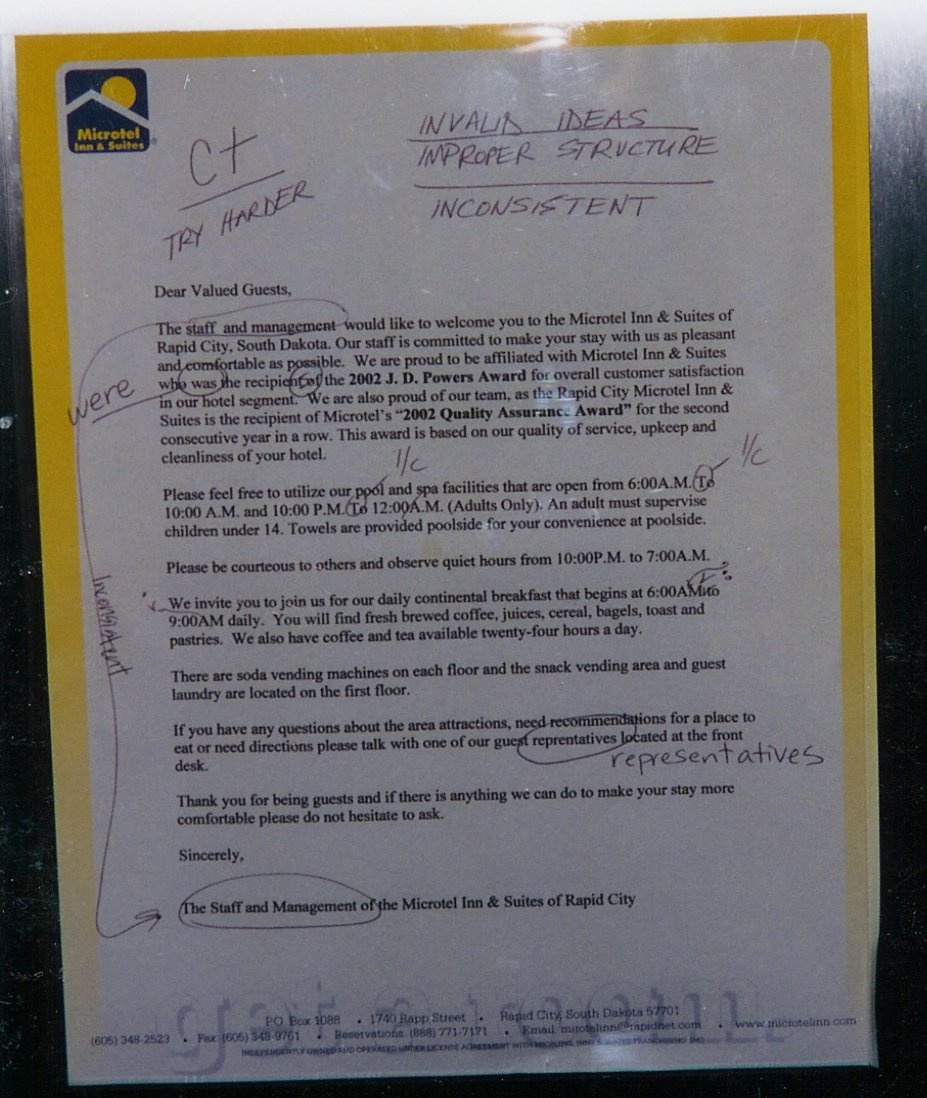 Microtel
Inn & Suites
C+
TRY HARDER
INVALID IDEAS
IMPROPER STRUCTURE
INCONSISTENT
Dear Valued Guests,
The staff and management would like to welcome you to the Microtel Inn & Suites of
Rapid City, South Dakota. Our staff is committed to make your stay with us as pleasant
and comfortable as possible. We are proud to be affiliated with Microtel Inn & Suites
who was the recipient of the 2002 J. D. Powers Award for overall customer satisfaction
were
in our hotel segment. We are also proud of our team, as the Rapid City Microtel Inn &
Suites is the recipient of Microtel's "2002 Quality Assurance Award" for the second
consecutive year in a row. This award is based on our quality of service, upkeep and
cleanliness of your hotel.
l/c
l/c
Please feel free to utilize our pool and spa facilities that are open from 6:00A.M. To
10:00 A.M. and 10:00 P.M. To 12:00A.M. (Adults Only). An adult must supervise
children under 14. Towels are provided poolside for your convenience at poolside.
Please be courteous to others and observe quiet hours from 10:00P.M. to 7:00A.M.
Inconsistent
We invite you to join us for our daily continental breakfast that begins at 6:00AM to
9:00AM daily. You will find fresh brewed coffee, juices, cereal, bagels, toast and
pastries. We also have coffee and tea available twenty-four hours a day.
There are soda vending machines on each floor and the snack vending area and guest
laundry are located on the first floor.
If you have any questions about the area attractions, need recommendations for a place to
eat or need directions please talk with one of our guest reprentatives located at the front
desk.
representatives
Thank you for being guests and if there is anything we can do to make your stay more
comfortable please do not hesitate to ask.
Sincerely,
The Staff and Management of the Microtel Inn & Suites of Rapid City
PO. Box 1088 • 1740 Rapp Street • Rapid City, South Dakota 57701
(605) 348-2523 • Fax (605) 348-9761 • Reservations (888) 771-7171 • Email mirotelinn@rapidnet.com • www.microtelinn.com
INDEPENDENTLY OWNED AND OPERATED UNDER LICENSE AGREEMENT WITH MICROTEL INNS & SUITES FRANCHISING, INC.